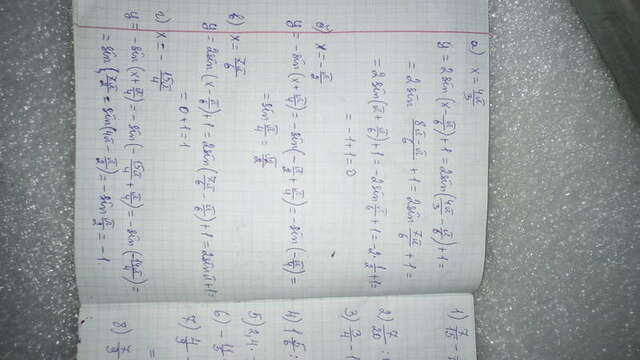 а) x = 4π/3
y = 2sin(x - π/6) + 1 = 2sin(4π/3 - π/6) + 1 =
= 2sin (8π-π)/6 + 1 = 2sin 7π/6 + 1 =
= 2sin(π + π/6) + 1 = -2sin π/6 + 1 = -2·1/2 + 1 =
= -1 + 1 = 0
б) x = -π/2
y = -sin(x + π/4) = -sin(-π/2 + π/4) = -sin(-π/4) =
= sin π/4 = √2/2
в) x = 7π/6
y = 2sin(x - π/6) + 1 = 2sin(7π/6 - π/6) + 1 = 2sinπ + 1 =
= 0 + 1 = 1
г) x = -15π/4
y = -sin(x + π/4) = -sin(-15π/4 + π/4) = -sin(-14π/4) =
= sin 7π/2 = sin(4π - π/2) = -sin π/2 = -1
1) 7/15
2) 7/20 :
3) 3/4 -
4) 1 5/6 :
5) 2,4
6) -
7) 4/3
8) 7/3
=